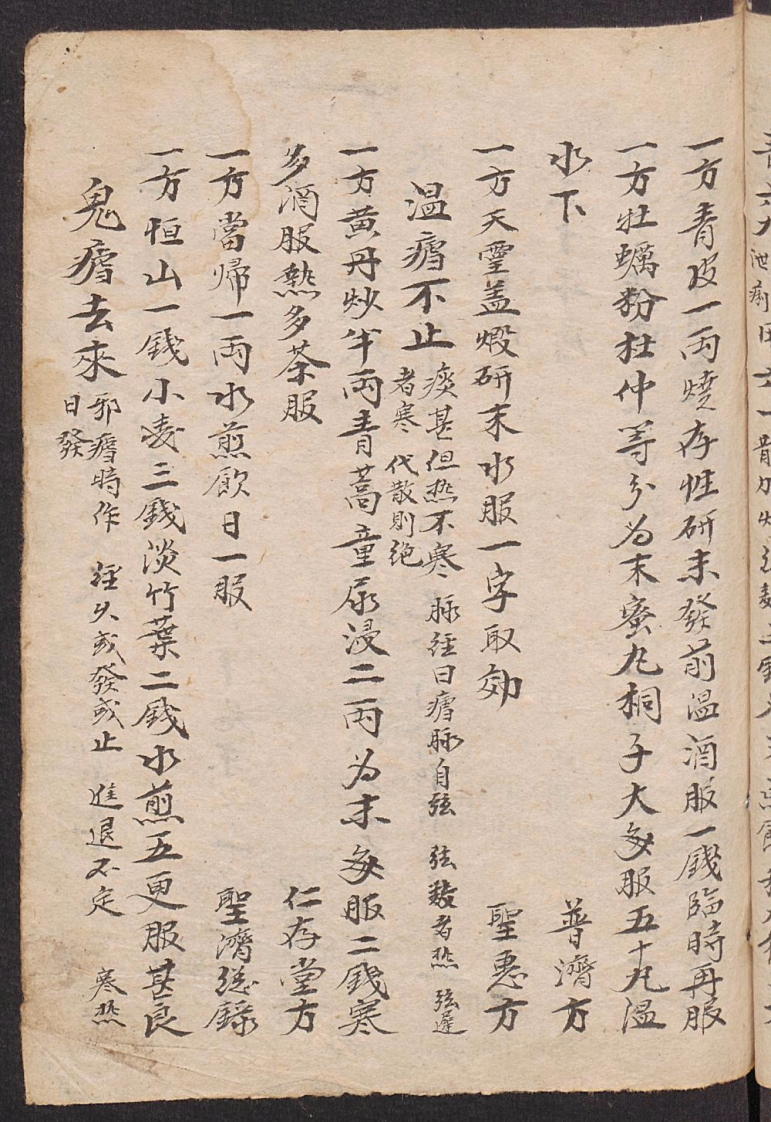 一方青皮一兩燒存性硏末發前溫酒服一錢臨時再服
一方牡蠣粉杜仲等分为末蜜丸桐子大每服五十丸溫
水下 普濟方
一方天靈盖煅研末水服一字取効 聖惠方
溫瘧不止 痰甚但热不寒 脉經曰瘧脉自弦 弦数者热 弦遲
者寒 代散則绝
一方黄丹炒半兩青蒿童尿浸二兩为末每服二錢寒
多酒服熱多茶服 仁存堂方
一方當歸一兩水煎飮日一服 聖濟総錄
一方恒山一錢小麦三錢淡竹葉二錢水煎五更服甚良
鬼瘧去來 邪瘧時作 經久或發或止 進退不定 寒热
日發